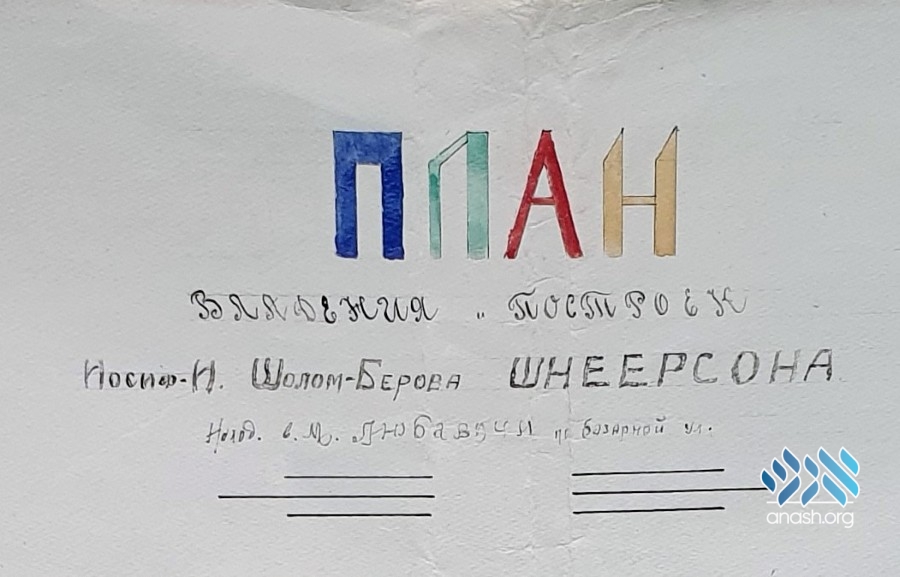 ПЛАН
ВЛАДЕНИЯ и ПОСТРОЕК
Иосиф-И. Шолом-Берова ШНЕЕРСОНА
Наход. в М. ЛЮБАВИЧИ по базарной ул.
אנש
anash.org